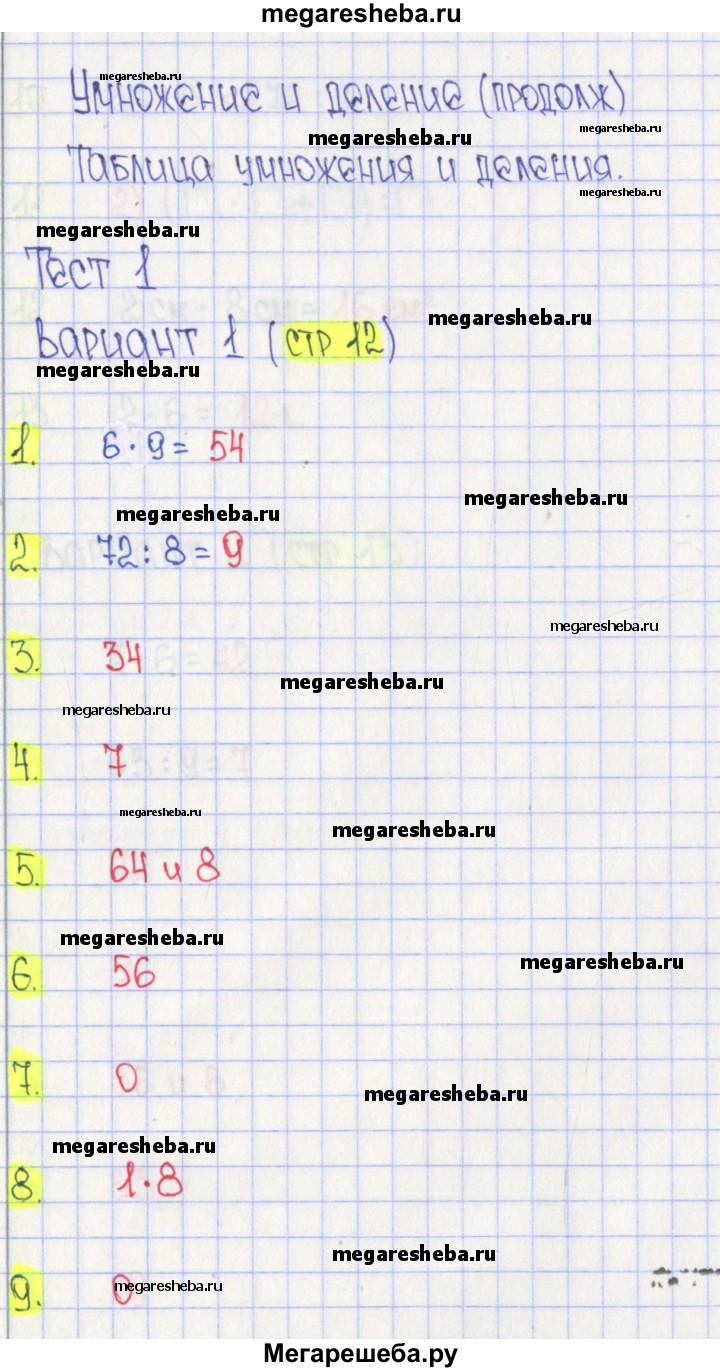 megaresheba.ru
megaresheba.ru
Умножение и деление (продолж)
megaresheba.ru
megaresheba.ru
Таблица умножения и деления.
megaresheba.ru
megaresheba.ru
Тест 1
megaresheba.ru
Вариант 1 (стр 12)
megaresheba.ru
1. 6·9= 54
megaresheba.ru
megaresheba.ru
2. 72:8=9
megaresheba.ru
3. 34
megaresheba.ru
megaresheba.ru
4. 7
megaresheba.ru
megaresheba.ru
5. 64 и 8
megaresheba.ru
megaresheba.ru
6. 56
7. 0
megaresheba.ru
megaresheba.ru
8. 1·8
megaresheba.ru
9. 0
megaresheba.ru
Мегарешеба.ру